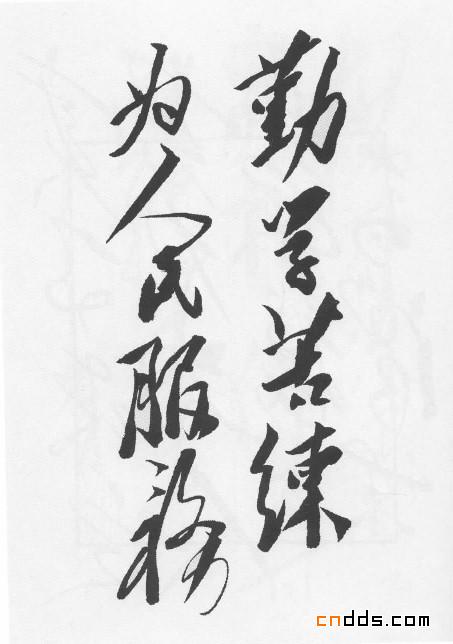 勤学苦練
为人民服務
cndds.com